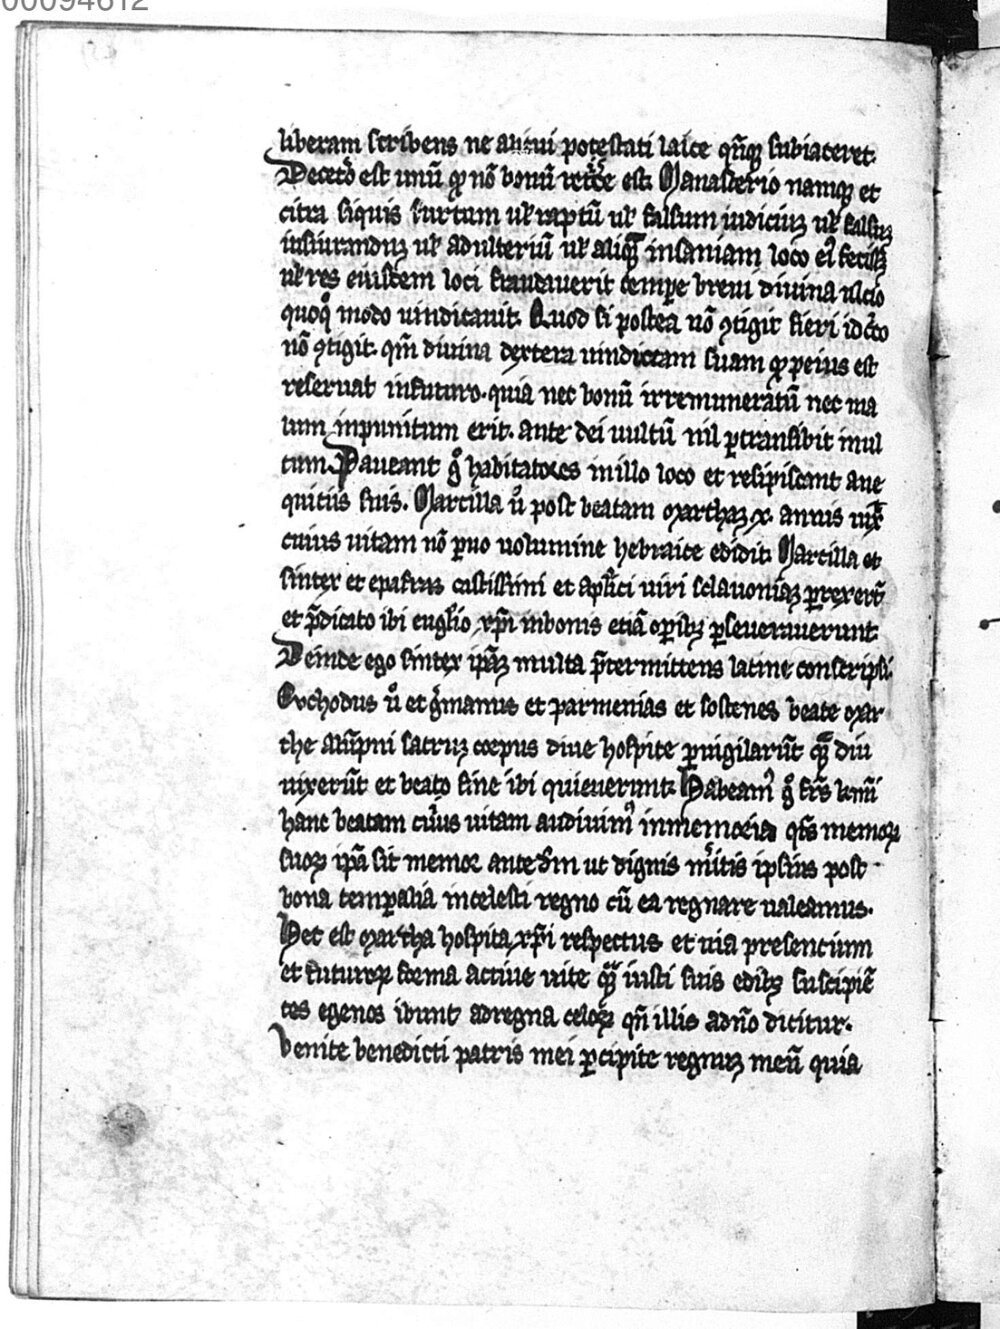 00094612
liberam scribens ne alicui potestati laice qn̄q subiaceret.
Deceto᷒ est unū qd nō bonū reticē est. Manasterio namq et
citra siquis furtum ul̄ raptū ul̄ falsum iudiciuꝫ ul̄ falsuꝫ
iusiuranduꝫ ul̄ adulteriū ul̄ aliqm̄ insaniam loco ei᷒ fecisꝫ
ul̄ res eiusdem loci fraudauerit tempe breui diuina ulcio
quoqꝫ modo uindicauit. Quod si postea nō ꝯtigit fieri idcͦo
nō ꝯtigit. qm̄ diuina dextera uindictam suam qd peius est
reseruat infuturo. quia nec bonū irremuneratū nec ma
lum inpunitum erit. ante dei uultū nil ꝑtransibit inul
tum. Paueant gͦ habitatores inillo loco et resipiscant ane
quiciis suis. Marcilla u᷒ post beatam martham .x. annis uix̄
cuius uitam nō ꝑuo uolumine hebraice edidit. Marcilla et
sintex et epafras castissimi et apl̄ici uiri sclauoniaꝫ ꝑrexert̄
et p̄dicato ibi eugl̄io xp̄i inbonis etiā oꝑibꝫ ꝑseuerauerunt.
Deinde ego sintex ip̄aꝫ multa p̄termittens latine conscripsi.
Euchodus u᷒ et gͥmanus et parmenias et sostenes beate mar
the alūpni sacruꝫ corpus diue hospite ꝑuigilarūt qm̄ diu
uixerūt et beato fine ibi quieuerunt. Habeam᷒ gͦ frs̄ kmī
hanc beatam cui᷒us uitam audiuim᷒ inmemoria qts̄ memoꝝ
suoꝝ ip̄a sit memor ante dm̄ ut dignis mͥitis ipsius post
bona temꝑalia incelesti regno cū ea regnare ualeamus.
Hec est martha hospita xp̄i respectus et uia presencium
et futuroꝝ forma actiue uite qm̄ iusti suis edibꝫ suscipiē
tes egenos ibunt adregna celoꝝ qn̄ illis adn̄o dicitur.
Venite benedicti patris mei ꝑcipite regnuꝫ meū quia